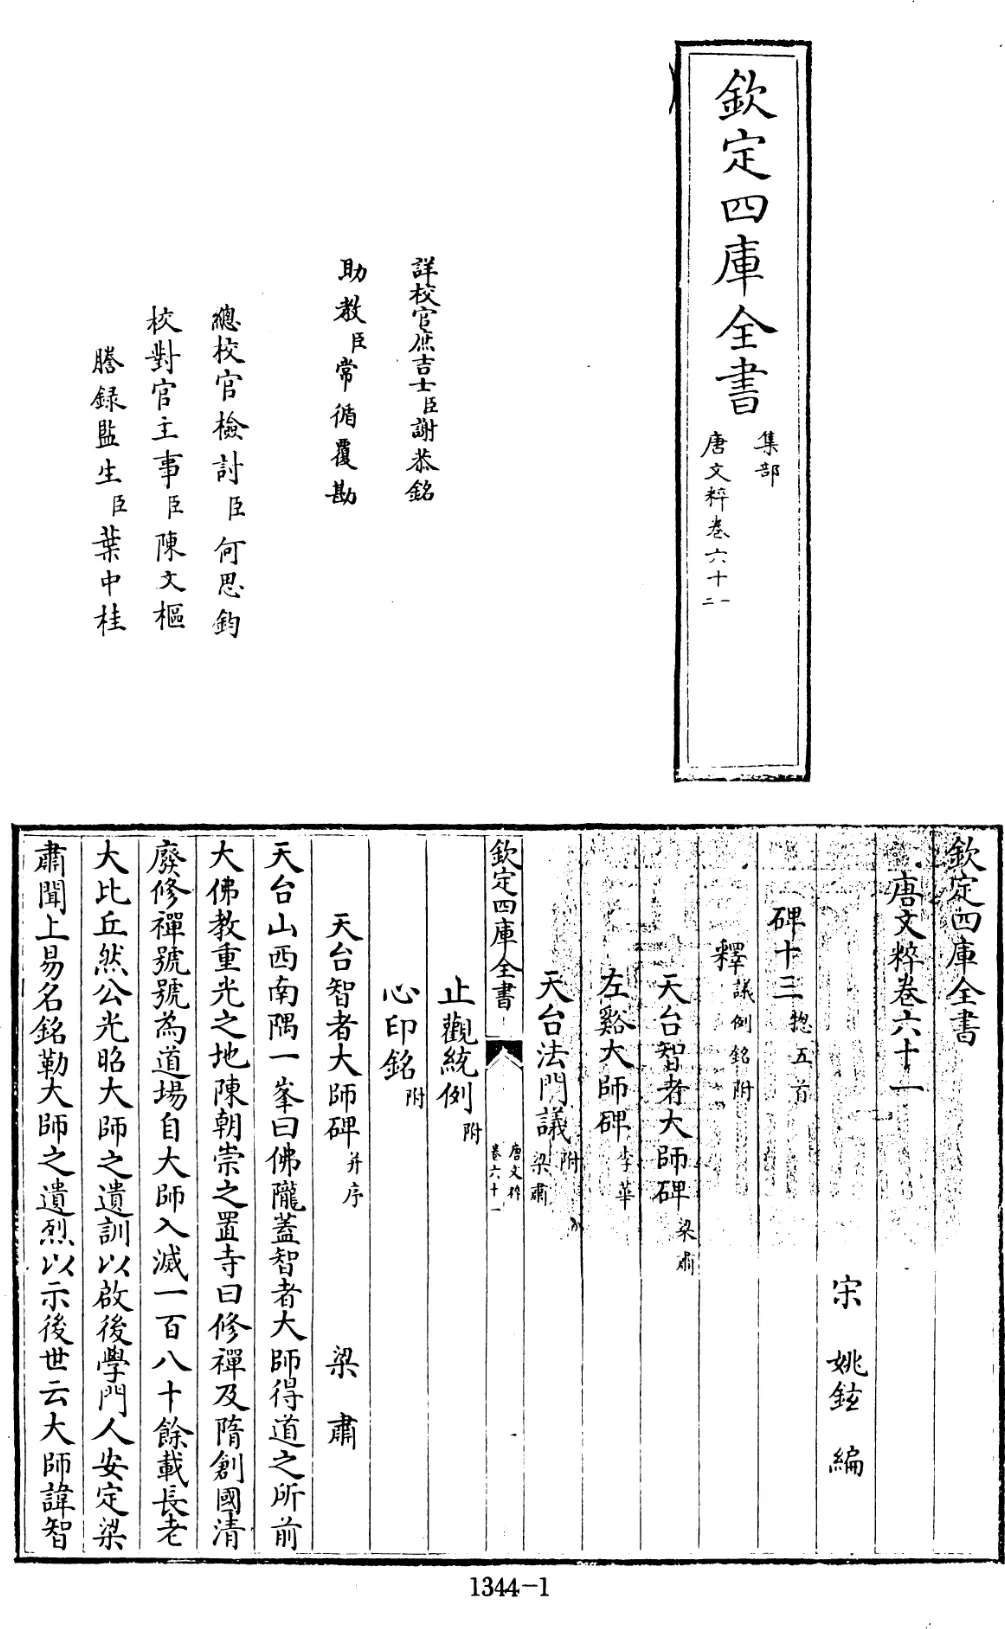 欽定四庫全書
集部
唐文粹卷六十一
二
詳校官庶吉士臣謝恭銘
助教臣常循覆勘
總校官檢討臣何思鈞
校對官主事臣陳文樞
謄録監生臣葉中桂
欽定四庫全書
唐文粹卷六十一
宋 姚鉉 編
碑十三 惣五首
釋 議例銘附
天台智者大師碑 梁肅
左谿大師碑 李華
天台法門議 附 梁肅
欽定四庫全書
唐文粹
卷六十一
止觀統例 附
心印銘 附
天台智者大師碑 并序 梁肅
天台山西南隅一峯曰佛隴蓋智者大師得道之所前
大佛教重光之地陳朝崇之置寺曰修禪及隋創國清
廢修禪號號為道場自大師入滅一百八十餘載長老
大比丘然公光昭大師之遺訓以啟後學門人安定梁
肅聞上易名銘勒大師之遺烈以示後世云大師諱智
1344-1